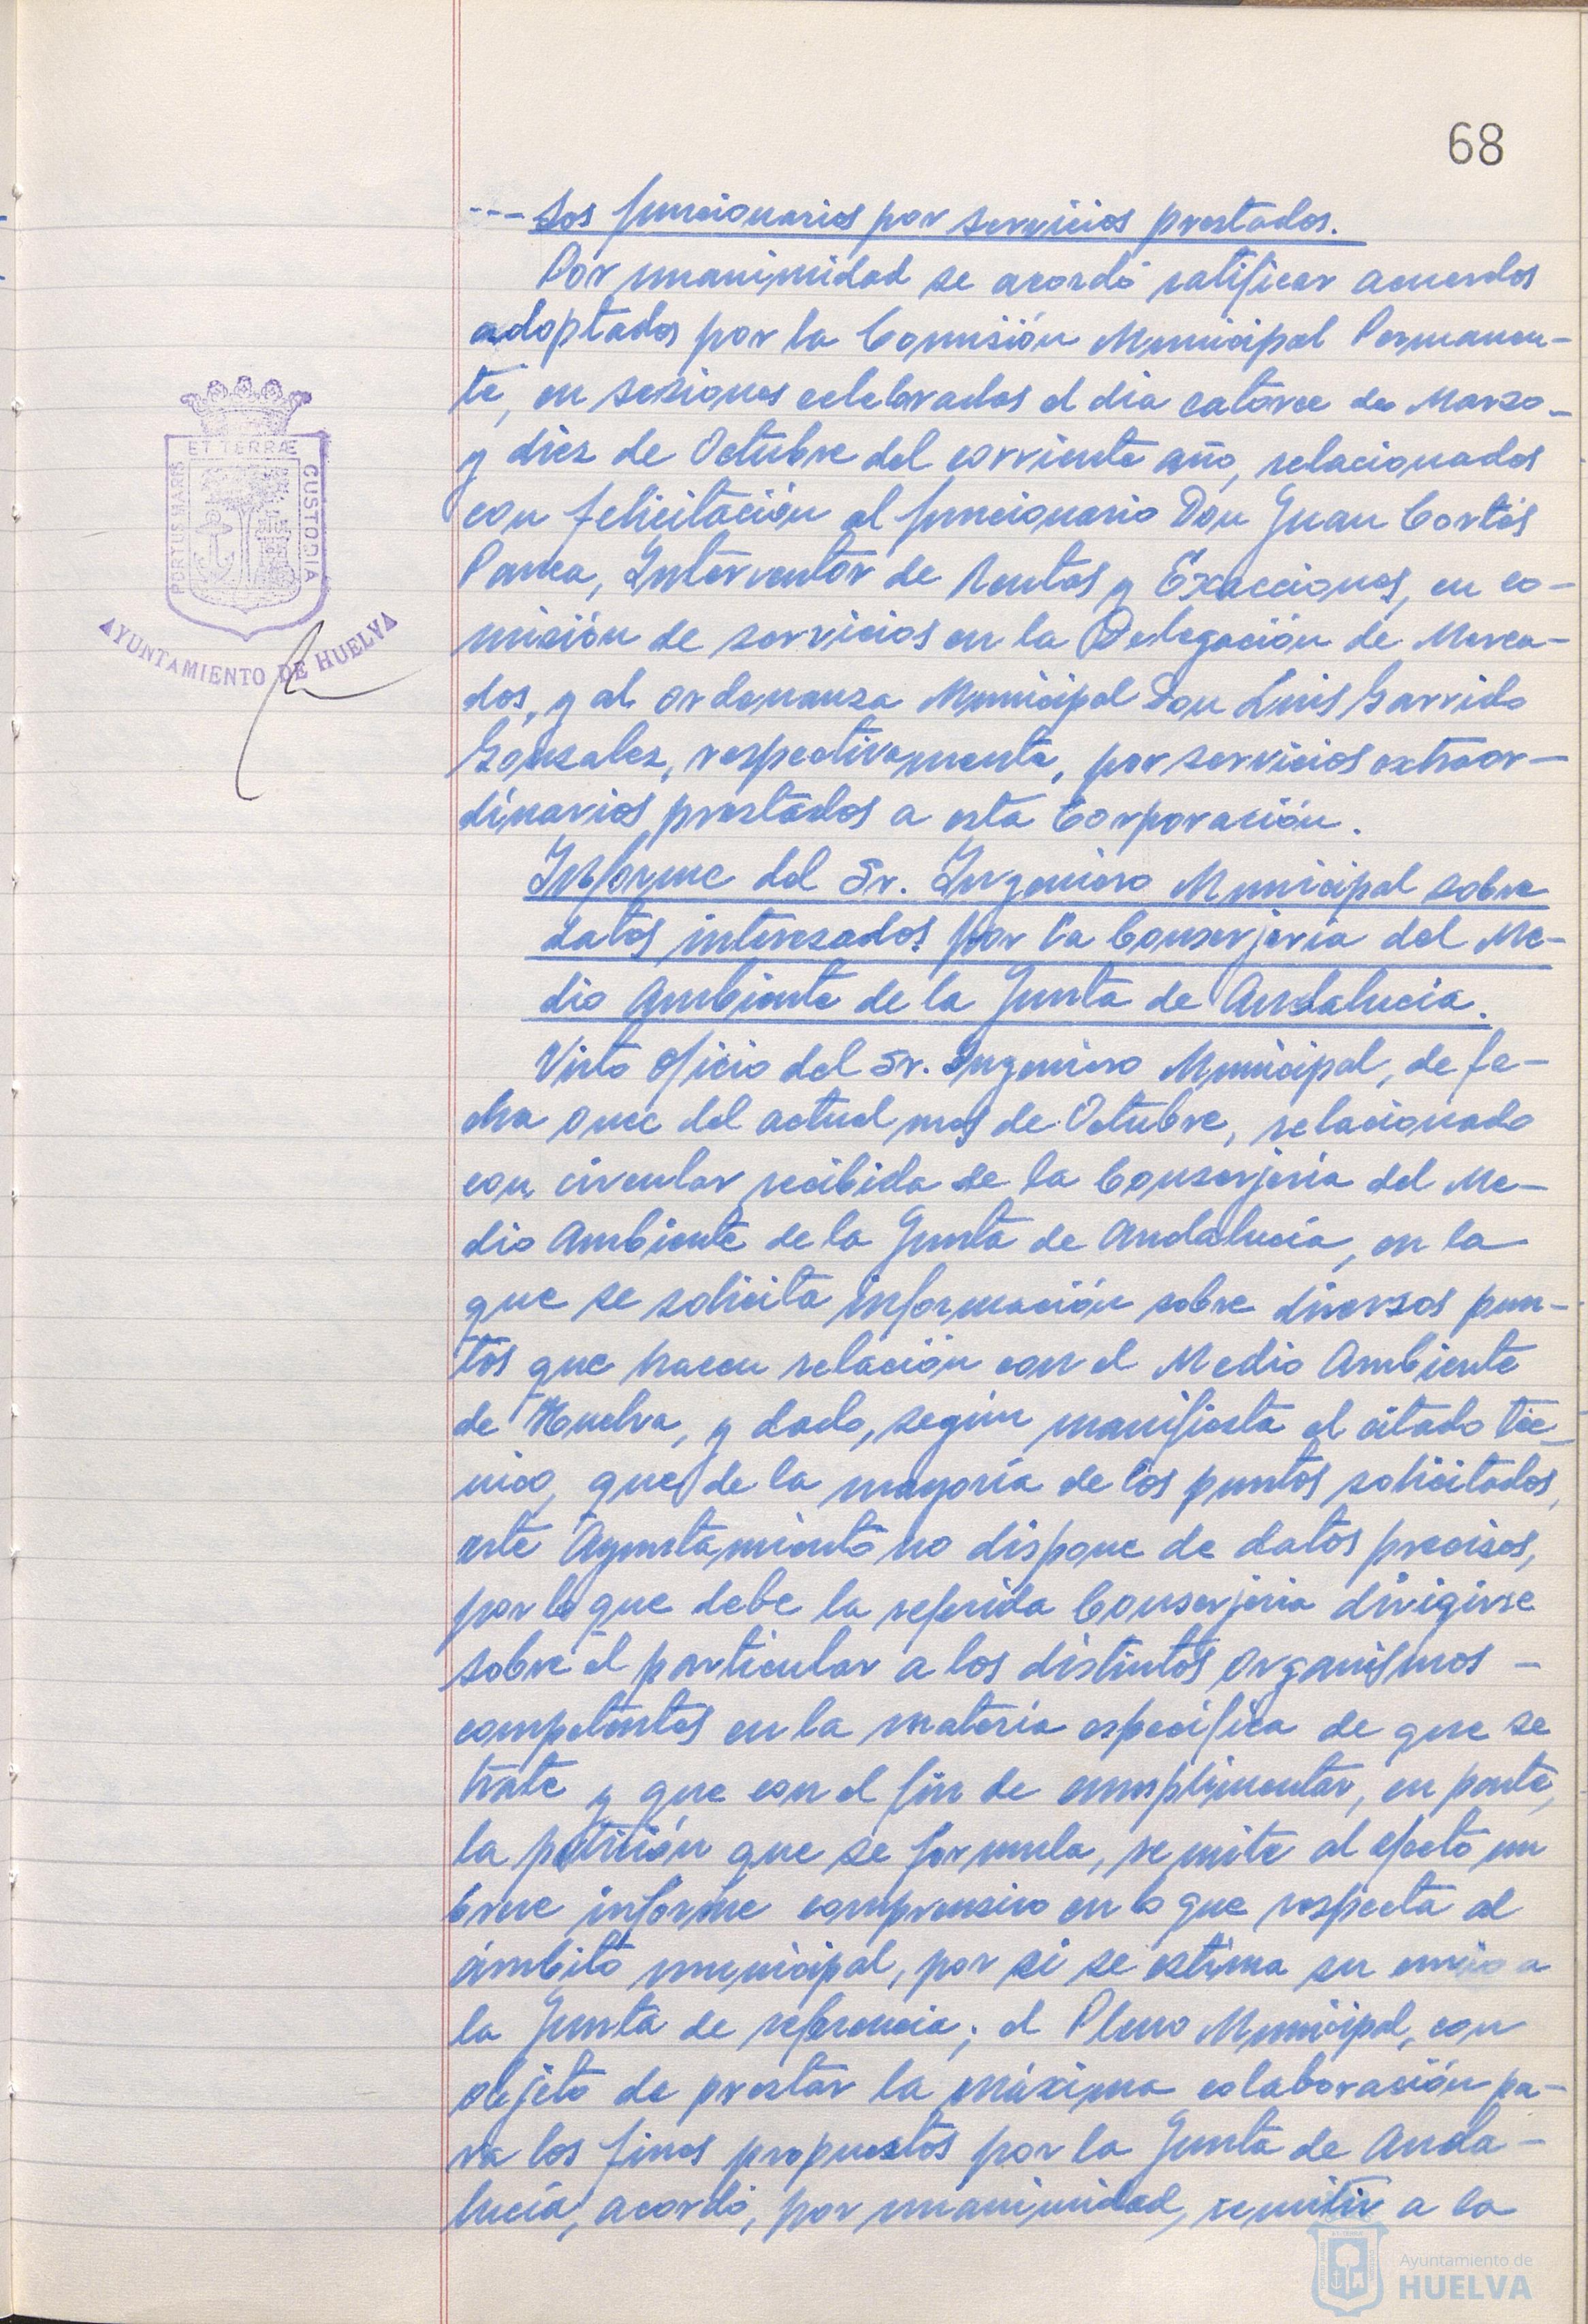 68
--- los funcionarios por servicios prestados.
Por unanimidad se acordó ratificar acuerdos
adoptados por la Comisión Municipal Permanen-
te, en sesiones celebradas el dia catorce de Marzo-
y diez de Octubre del corriente año, relacionados
con felicitación al funcionario Don Juan Cortés
Ponea, Interventor de Rentas y Exacciones, en co-
misión de servicios en la Delegación de Merca-
dos, y al ordenanza Municipal Don Luis Garrido
Gonzalez, respectivamente, por servicios extraor-
dinarios prestados a esta Corporación.
Informe del Sr. Ingeniero Municipal sobre
datos interesados por la Conserjeria del Me-
dio Ambiente de la Junta de Andalucia.
Visto oficio del Sr. Ingeniero Municipal, de fe-
cha once del actual mes de Octubre, relacionado
con circular recibida de la Conserjeria del Me-
dio Ambiente de la Junta de Andalucia, en la
que se solicita información sobre diversos pun-
tos que hacen relación con el Medio Ambiente
de Huelva, y dado, según manifiesta el citado téc-
nico, que de la mayoría de los puntos solicitados,
este Ayuntamiento no dispone de datos precisos,
por lo que debe la referida Conserjeria dirigirse
sobre el particular a los distintos organismos -
competentes en la materia especifica de que se
trate y que con el fin de cumplimentar, en parte,
la petición que se formula, remite al efecto un
breve informe comprensivo en lo que respecta al
ámbito municipal, por si se estima su envio a
la Junta de referencia; el Pleno Municipal, con
objeto de prestar la máxima colaboración pa-
ra los fines propuestos por la Junta de Anda-
lucía, acordó, por unanimidad, remitir a la
ET TERRÆ
PORTUS MARIS
CUSTODIA
AYUNTAMIENTO DE HUELVA
Ayuntamiento de
HUELVA